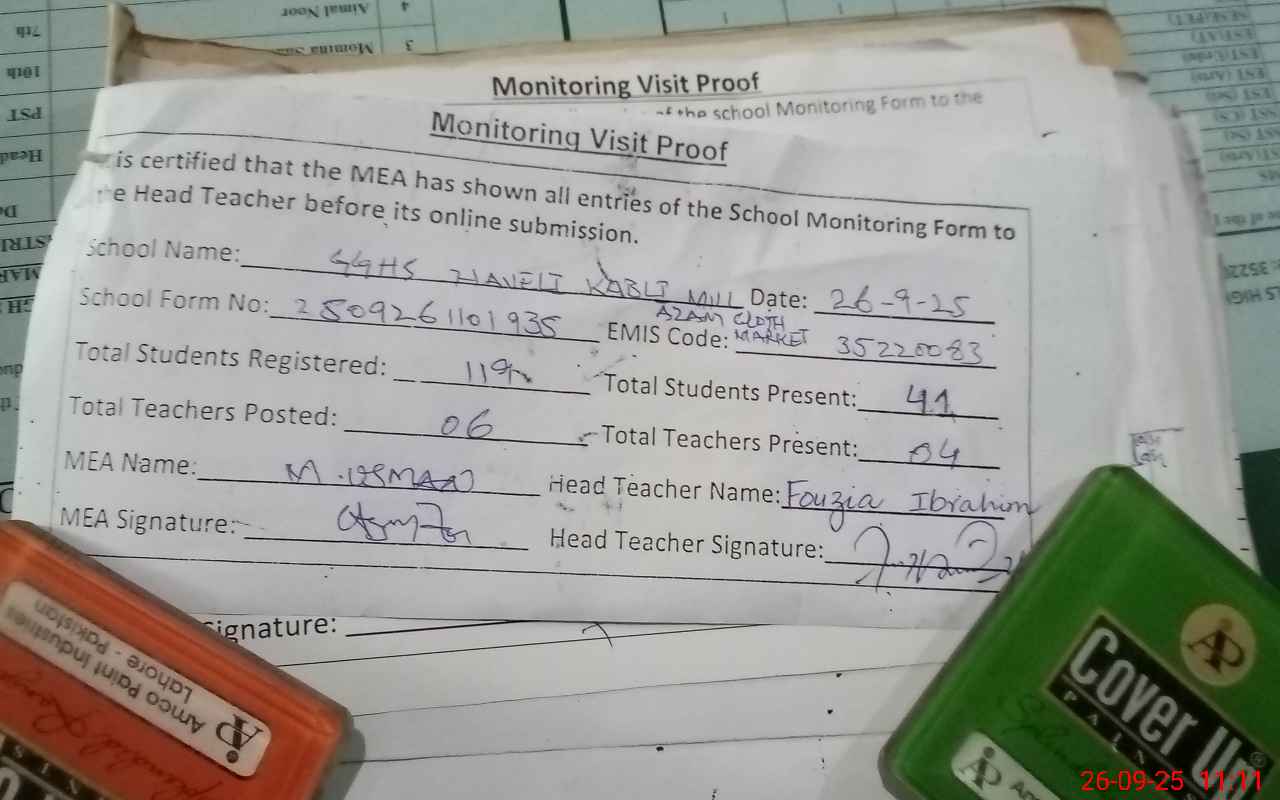 7th
Aimal Noor
4
10th
3
PST
Head
Monitoring Visit Proof
of the school Monitoring Form to the
Monitoring Visit Proof
is certified that the MEA has shown all entries of the School Monitoring Form to
the Head Teacher before its online submission.
School Name: GGHS HAVELI KABLI MILL Date: 26-9-25
AZAM CLOTH
School Form No: 2509261101935 EMIS Code: MARKET 35220083
Total Students Registered: 119 Total Students Present: 41
Total Teachers Posted: 06 Total Teachers Present: 04
MEA Name: M. USMAN Head Teacher Name: Fouzia Ibrahim
MEA Signature: Head Teacher Signature:
Signature:
Amco Paint Industries
Lahore - Pakistan
AP
AP
Cover Up
PAINTS
AP
26-09-25 11:11